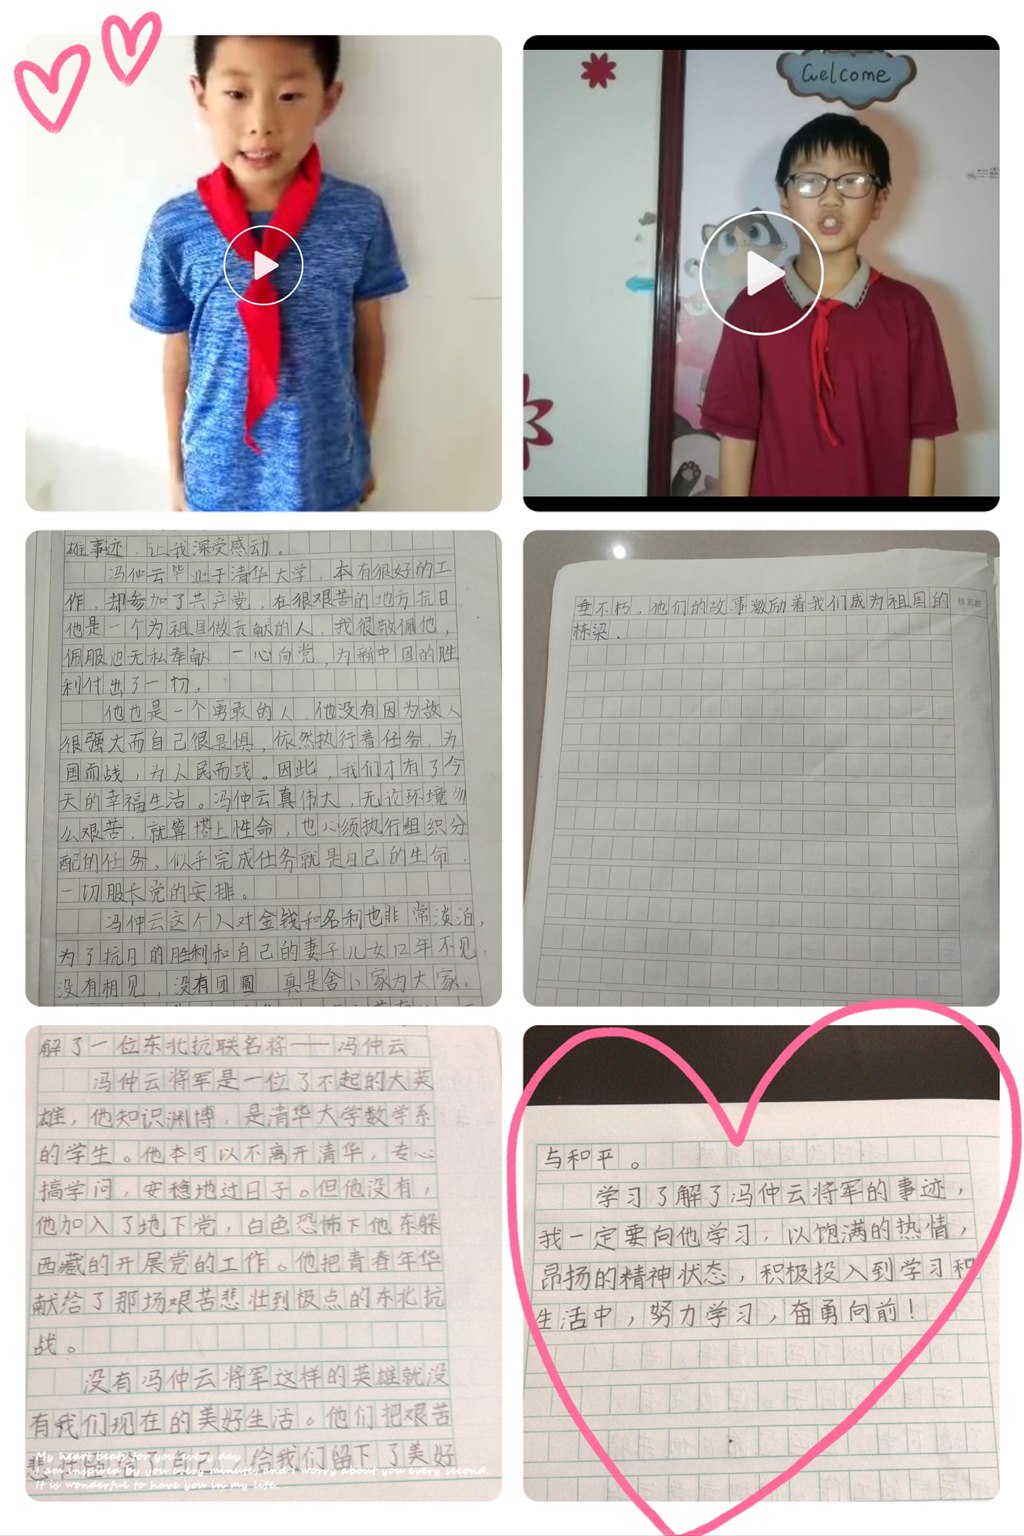 Welcome
雄事迹，让我深受感动。
冯仲云毕业于清华大学，本有很好的工
作，却参加了共产党，在很艰苦的地方抗日，
他是一个为祖国做贡献的人，我很敬佩他，
佩服他无私奉献，一心向党，为新中国的胜
利付出了一切。
他也是一个勇敢的人，他没有因为敌人
很强大而自己很畏惧，依然执行着任务，为
国而战，为人民而战。因此，我们才有了今
天的幸福生活。冯仲云真伟大，无论环境多
么艰苦，就算搭上性命，也必须执行组织分
配的任务，似乎完成任务就是自己的生命，
一切服从党的安排。
冯仲云这个人对金钱和名利也非常淡泊，
为了抗日的胜利和自己的妻子儿女12年不见，
没有相见，没有团圆，真是舍小家为大家。
垂不朽。他们的故事激励着我们成为祖国的
栋梁.
解了一位东北抗联名将——冯仲云
冯仲云将军是一位了不起的大英
雄，他知识渊博，是清华大学数学系
的学生。他本可以不离开清华，专心
搞学问，安稳地过日子。但他没有，
他加入了地下党，白色恐怖下他东躲
西藏的开展党的工作。他把青春年华
献给了那场艰苦悲壮到极点的东北抗
战。
没有冯仲云将军这样的英雄就没
有我们现在的美好生活。他们把艰苦
给我们留下了美好
My heart beats for you every day
I am inspired by you every minute, and I worry about you every second.
It is wonderful to have you in my life.
与和平。
学习了解了冯仲云将军的事迹，
我一定要向他学习，以饱满的热情，
昂扬的精神状态，积极投入到学习和
生活中，努力学习，奋勇向前！